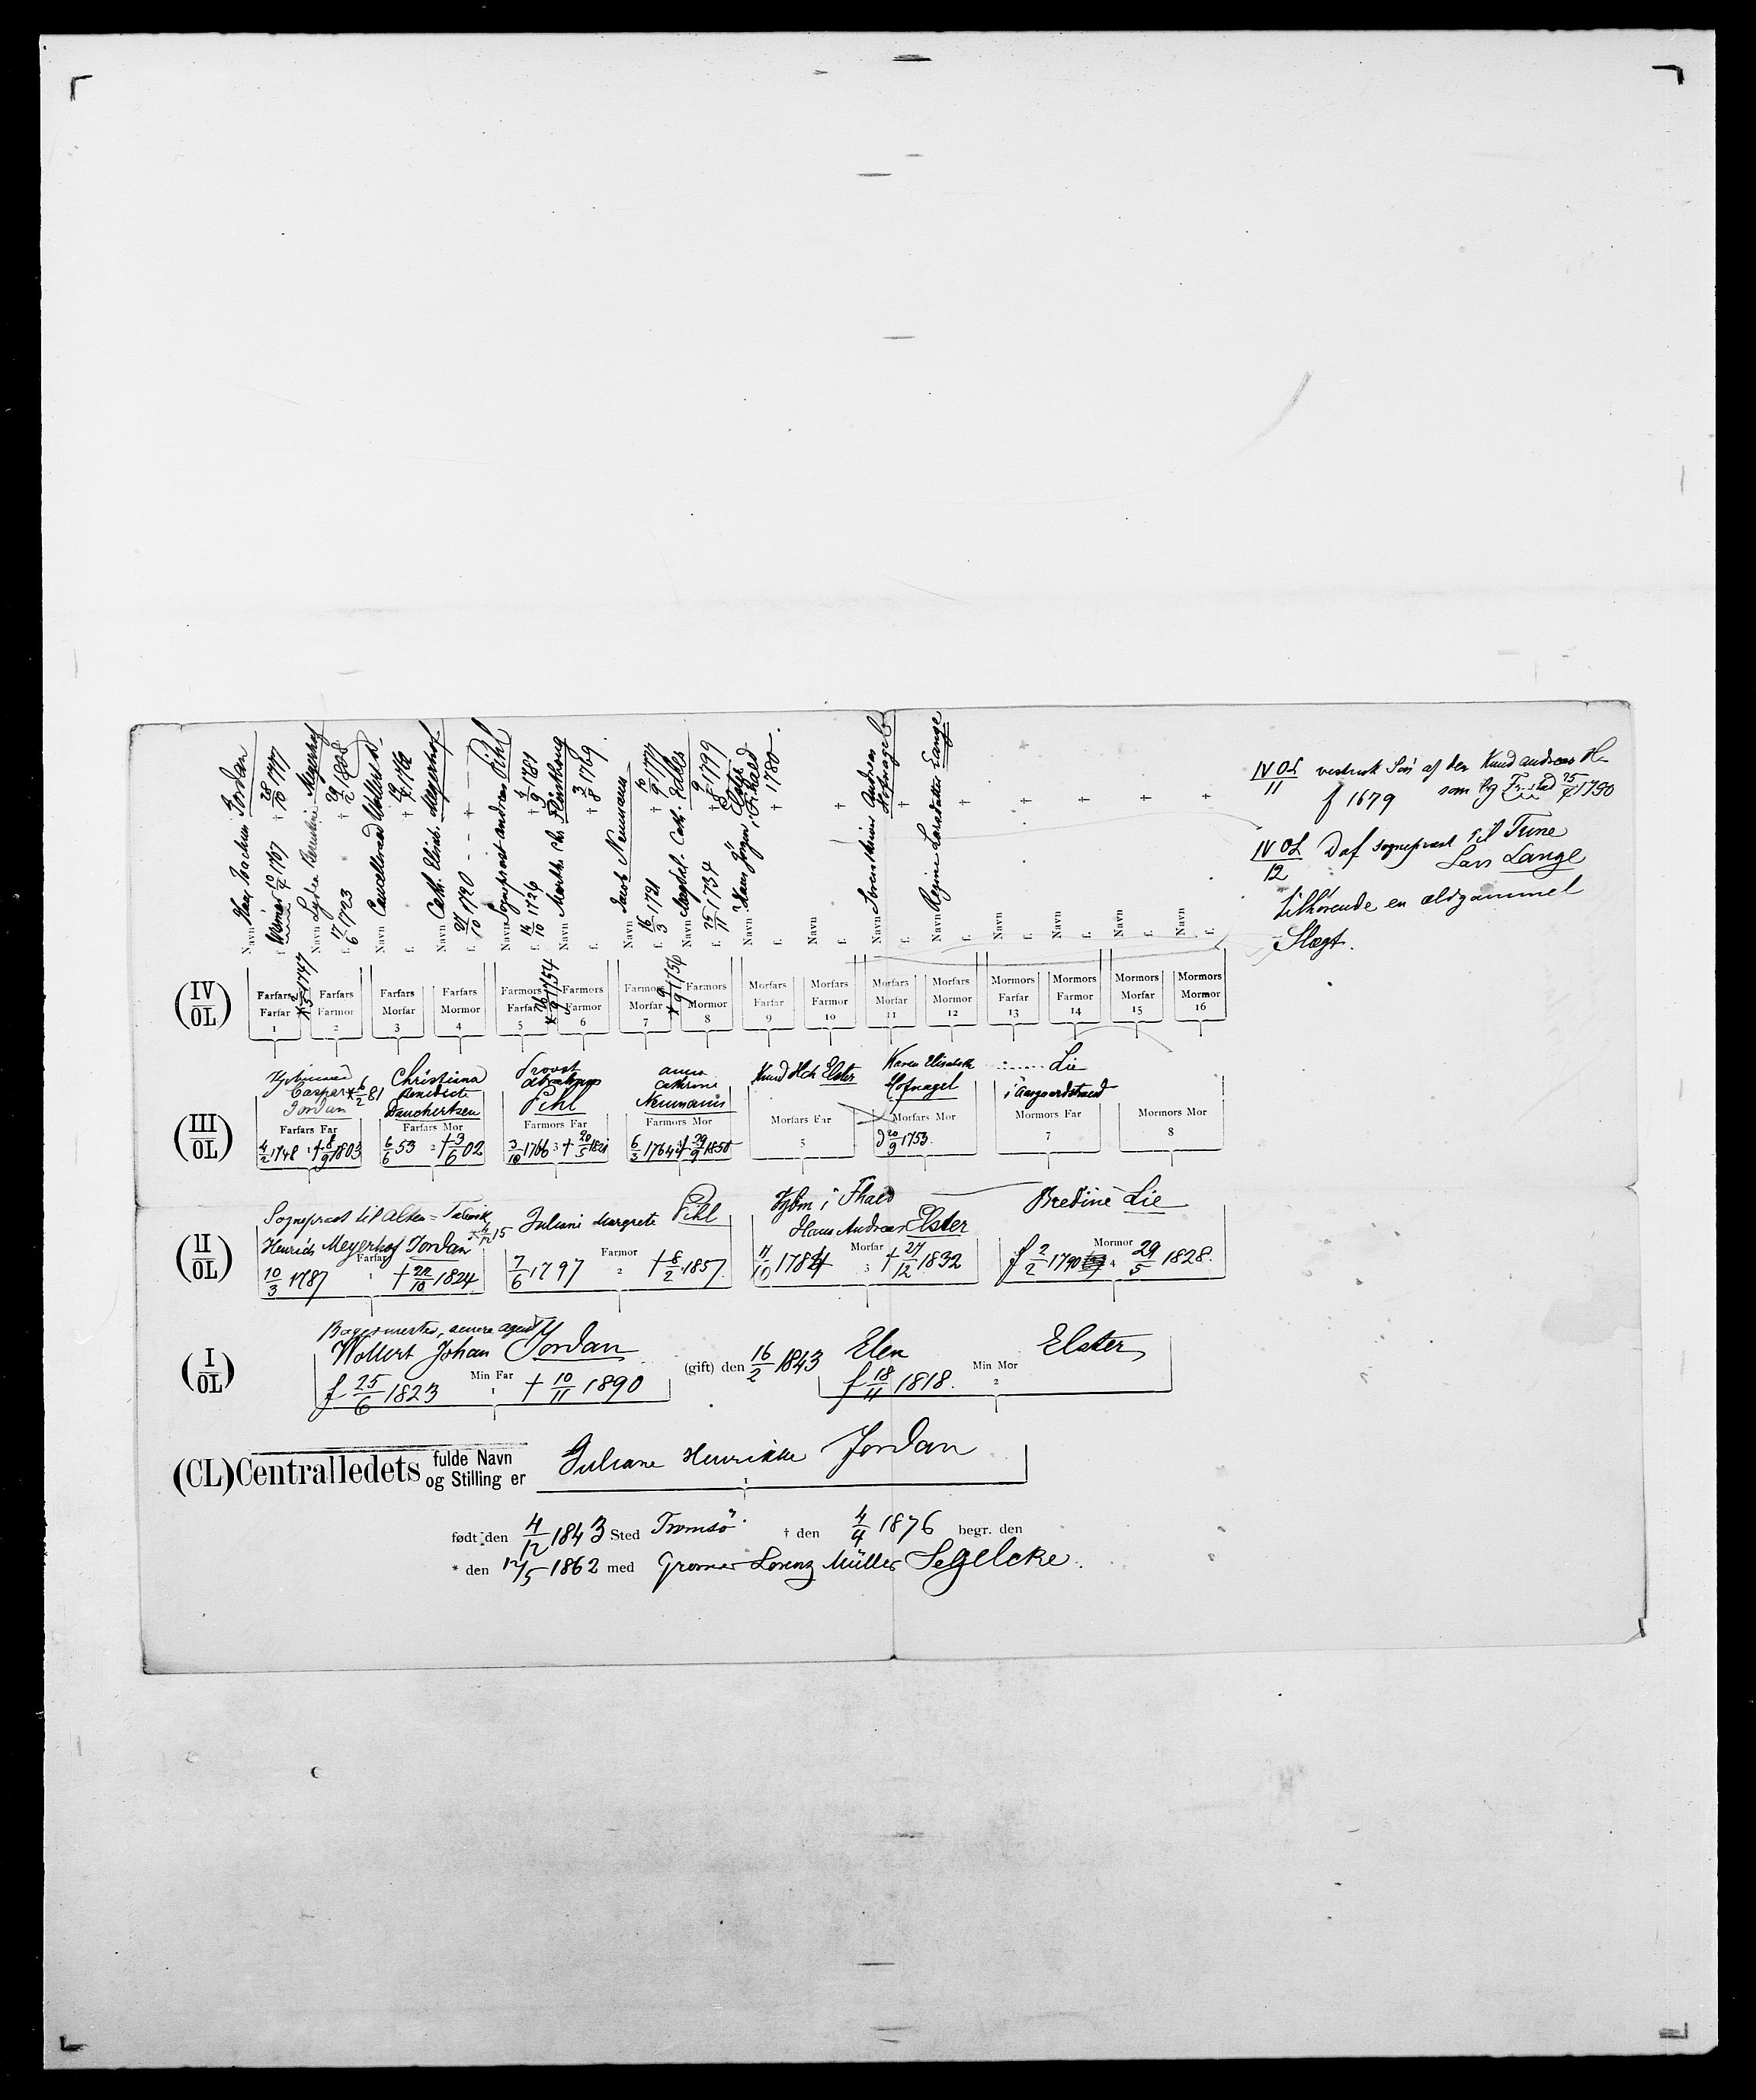 Hans Joachim Jordan
Navn
Weimar 10/4 1707 † 28/10 1777
* 2/5 1747
Navn Lydia Meyerhof
f. 17/6 1723 † 29/2 1808
Navn Cancelleraad Wollert D.
f. † 19/4 1762
Navn Cath. Elisab. Meyerhof
f. 27/10 1720 - - † - -
Navn Sogneprest Andreas Pihl
f. 14/10 1726 † 4/9 1781
* 26/9 1754
Navn Marthe Chr. Flinthoug
f. † 3/8 1769.
Navn Jacob Neumann
f. 16/3 1721 † 10/9 1777
* 9/9 1756
Navn Magdal. Cath. Kolbe
f. 25/11 1734 † 9/8 1799
Navn Hans Jörgen Elster
i Thi † 1780.
Navn
f. †
Navn Sören Andreas Hofnagel
f. †
Navn Regine Larsdatter Lange
f. †
Navn
f. †
Navn
f. †
Navn
f. †
Navn
f. †
IV OL/11 Søn af den Knud Andreas H-
f 1679 som 25/ 1790
IV OL/12 D af Sogneprest til Tune
Lars Lange
tilhörende en ældgammel
Slægt.
(IV/OL)
Farfars Farfar 1
Farfars Farmor 2
Farfars Morfar 3
Farfars Mormor 4
Farmors Farfar 5
Farmors Farmor 6
Farmors Morfar 7
Farmors Mormor 8
Morfars Farfar 9
Morfars Farmor 10
Morfars Morfar 11
Morfars Mormor 12
Mormors Farfar 13
Mormors Farmor 14
Mormors Morfar 15
Mormors Mormor 16
(III/OL)
Caspar Jordan * 6/2 81
Farfars Far
4/2 1748 1 † 8/9 1803
Christiana Benedicte Danchertsen
Farfars Mor
6/6 53 2 † 3/6 02
Provst Abraham Pihl
Farmors Far
3/10 1766 3 † 20/5 1821
Anna Cathrine Neumann
Farmors Mor
6/3 1764 4 † 29/9 1850
Knud Hch Elster
Morfars Far
5
Karen Elisabeth Hofnagel
Morfars Mor
d 20/9 1753.
...... Lie
i Aasgaardstrand
Mormors Far
7
Mormors Mor
8
(II/OL)
Sogneprest til Alten = Talvik
Henrich Meyerhof Jordan
Farfar
10/3 1787 1 † 22/10 1824
* 4/12 15
Juliane Margrete Pihl
Farmor
7/6 1797 2 † 8/2 1857.
Kjbm i Thi
Hans Andreas Elster
Morfar
11/10 1784 3 † 27/12 1832
Bredine Lie
Mormor
f 2/2 1790 4 29/5 1828.
(I/OL)
Bagermester, senere agent
Wollert Johan Jordan
Min Far
f 25/6 1823 1 † 10/11 1890
(gift) den 16/2 1843
Elen Elster
Min Mor
f 18/11 1818. 2
(CL) Centralledets fulde Navn og Stilling er Juliane Henrikke Jordan
1
født den 4/12 1843 Sted Tromsö. † den 4/4 1876 begr. den
* den 12/5 1862 med Grosser Lorenz Müller Segelcke.